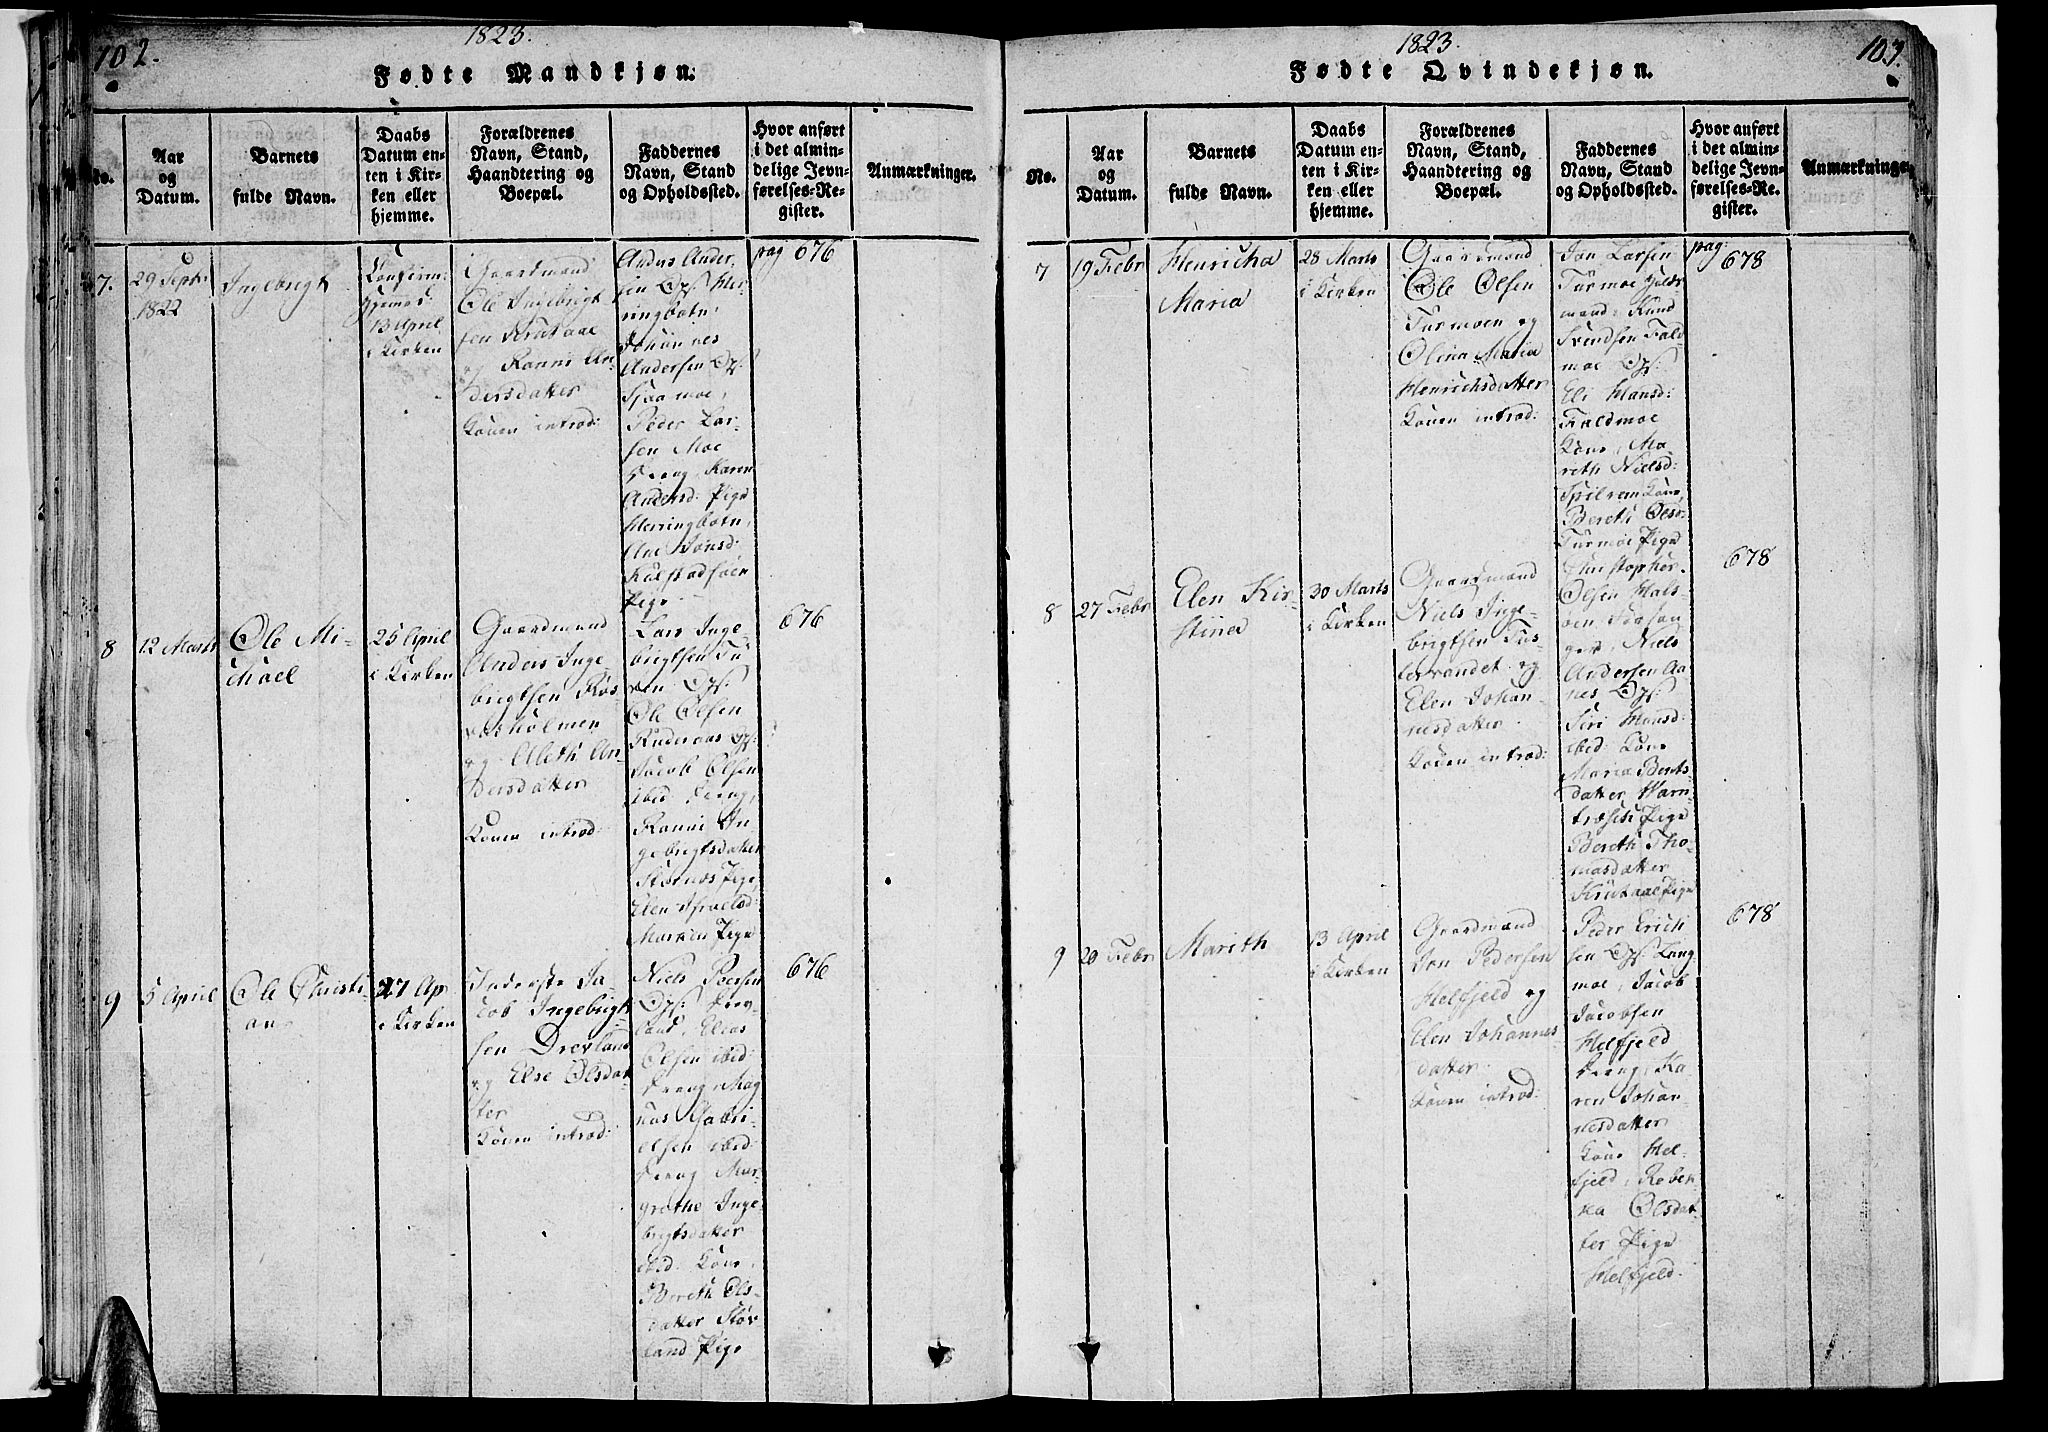 102.
1823.
Fødte Mandkjøn.
No.
Aar
og
Datum.
Barnets
fulde Navn.
Daabs
Datum en-
ten i Kir-
ken eller
hjemme.
Forældrenes
Navn, Stand,
Haandtering og
Boepæl.
Faddernes
Navn, Stand
og Opholdssted.
Hvor anført
i det almin-
delige Jevn-
førelses-Re-
gister.
Anmærkninger.
7.
29 Septr:
1822
Ingebrigt
Confirm:
hjemed:
13 April
i Kirken
Gaardmand
Ole Ingebrigt
sen Krutaae
og Ranni An
dersdatter
Konen introd:
Anders Ander
sen Gm: Her
ringbotn,
Johannes
Andersen Gm:
Sjaamoe,
Peder Lar-
sen Moe
Dreng, Karen
Andersd: Pige
Herringbotn,
Ane Jonsd:
Kalstadhøen
Pige
pag 676
8
12 Marts
Ole Mi-
chael
25 April
i Kirken
Gaardmand
Anders Inge-
brigtsen Røs
vasholmen
og Aleth An
dersdatter
Konen introd:
Lars Inge-
brigtsen Tu-
ven Gm:
Ole Olsen
Ruderaas Gm:
Jacob Olsen
ibid: Dreng,
Ranni In
gebrigtsdatter
Stornæs Pige,
Elen Israelsd:
Marken Pige
676
9
5 April
Ole Christi-
an
27 Ap
i Kirken
Inderste Ja-
cob Ingebrigt
sen Drevland
og Else Olsdat-
ter
Konen introd:
Niels Poelsen
Gm: Drev-
land, Elias
Olsen ibid:
Dreng, Mag
nus Gabri-
elsen ibid:
Dreng Mar-
grethe Inge-
brigtsdatter
ibid: Kone,
Bereth Ols-
datter Stor
land Pige
676
103.
1823.
Fødte Qvindekjøn.
No.
Aar
og
Datum.
Barnets
fulde Navn.
Daabs
Datum en-
ten i Kir-
ken eller
hjemme.
Forældrenes
Navn, Stand,
Haandtering og
Boepæl.
Faddernes
Navn, Stand
og Opholdssted.
Hvor anført
i det almin-
delige Jevn-
førelses-Re-
gister.
Anmærkninger.
7
19 Febr
Henricha
Maria
28 Marts
i Kirken
Gaardmand
Ole Olsen
Turmoen og
Olina Maria
Henrichsdatter
Konen introd:
Jon Larsen
Turmoe
mand: Knud
Svendsen Fald
moe Gm:
Eli Hansd:
Faldmoe
Kone, Ma
reth Nielsd:
Spilrem Kone,
Bereth Olsd:
Turmoe Pige
pag: 678
8
27 Febr
Elen Kir-
stina
30 Marts
i Kirken
Gaardmand
Niels Inge-
brigtsen Tus-
tervandet og
Elen Johan-
nesdatter
Konen introd:
Christopher
Olsen Hals-
Niels
Andersen Aa-
nes Gm:
Siri Hansd:
ibid: Kone
Maria Bents-
datter Varn-
træsk Pige
Bereth Tho-
masdatter
Krutaae Pige
678
9
20 Febr
Marith
13 April
i Kirken
Gaardmand
Jon Pedersen
Helfjeld og
Elen Johannes-
datter
Konen introd:
Peder Erich
sen Gm: Lang
moe, Jacob
Jacobsen
Helfjeld
Dreng, Ka
ren Johan-
nesdatter
Kone Hel-
fjeld, Rebek
ka Olsdat-
ter Pige
Helfjeld.
678